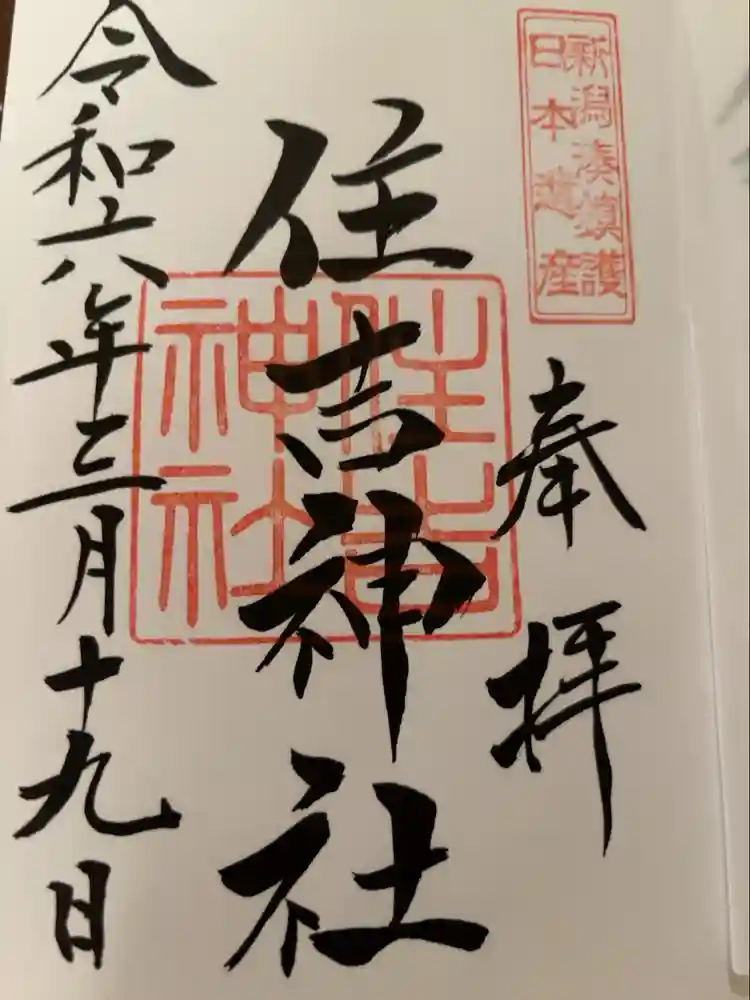 新潟湊鎮護
日本遺産
奉拝
住吉神社
住吉
神社
令和六年三月十九日